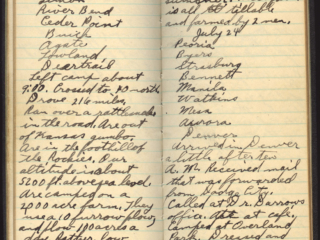 River Bend
Ceder Point
Buick
Agate
Lowland
Deertrail
Left camp about
9:00. Crossed to 30 north
Drove 216 miles.
Ran over a rattlesnake
in the road. Are out
of Kansas gumbo.
Are in the foothill of
the Rockies. Our
altitude is about
5200 ft above sea level.
Are camped on a
2,000 acre farm. They
use a 10 furrow plow,
and plow 110 acres a
day. Rather low
is all tillable
and farmed by 2 men.
July 24
Peoria
Byers
Strasburg
Bennett
Manila
Watkins
Mesa
Aurora
Denver
Arrived in Denver
a little after ten
A.M. Received mail
that was forwarded
from Dodge City.
Called at Dr. Barrows
office. Ate at cafe,
camped at Overland
Park. Dressed and